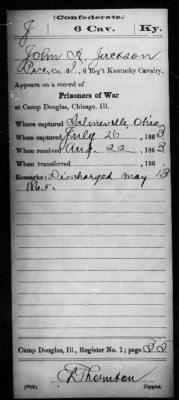 (Confederate.)
J 6 Cav. Ky.
John H. Jackson
Pvt., Co. 6 Reg't Kentucky Cavalry.
Appears on a record of
Prisoners of War
at Camp Douglas, Chicago, Ill.
Where captured Salineville Ohio
When captured July 26, 1863
When received Aug. 22, 1863
When transferred , 186 .
Remarks: Discharged May 13
1865.
Camp Douglas, Ill., Register No. 1; page
Thornton
Copyist.